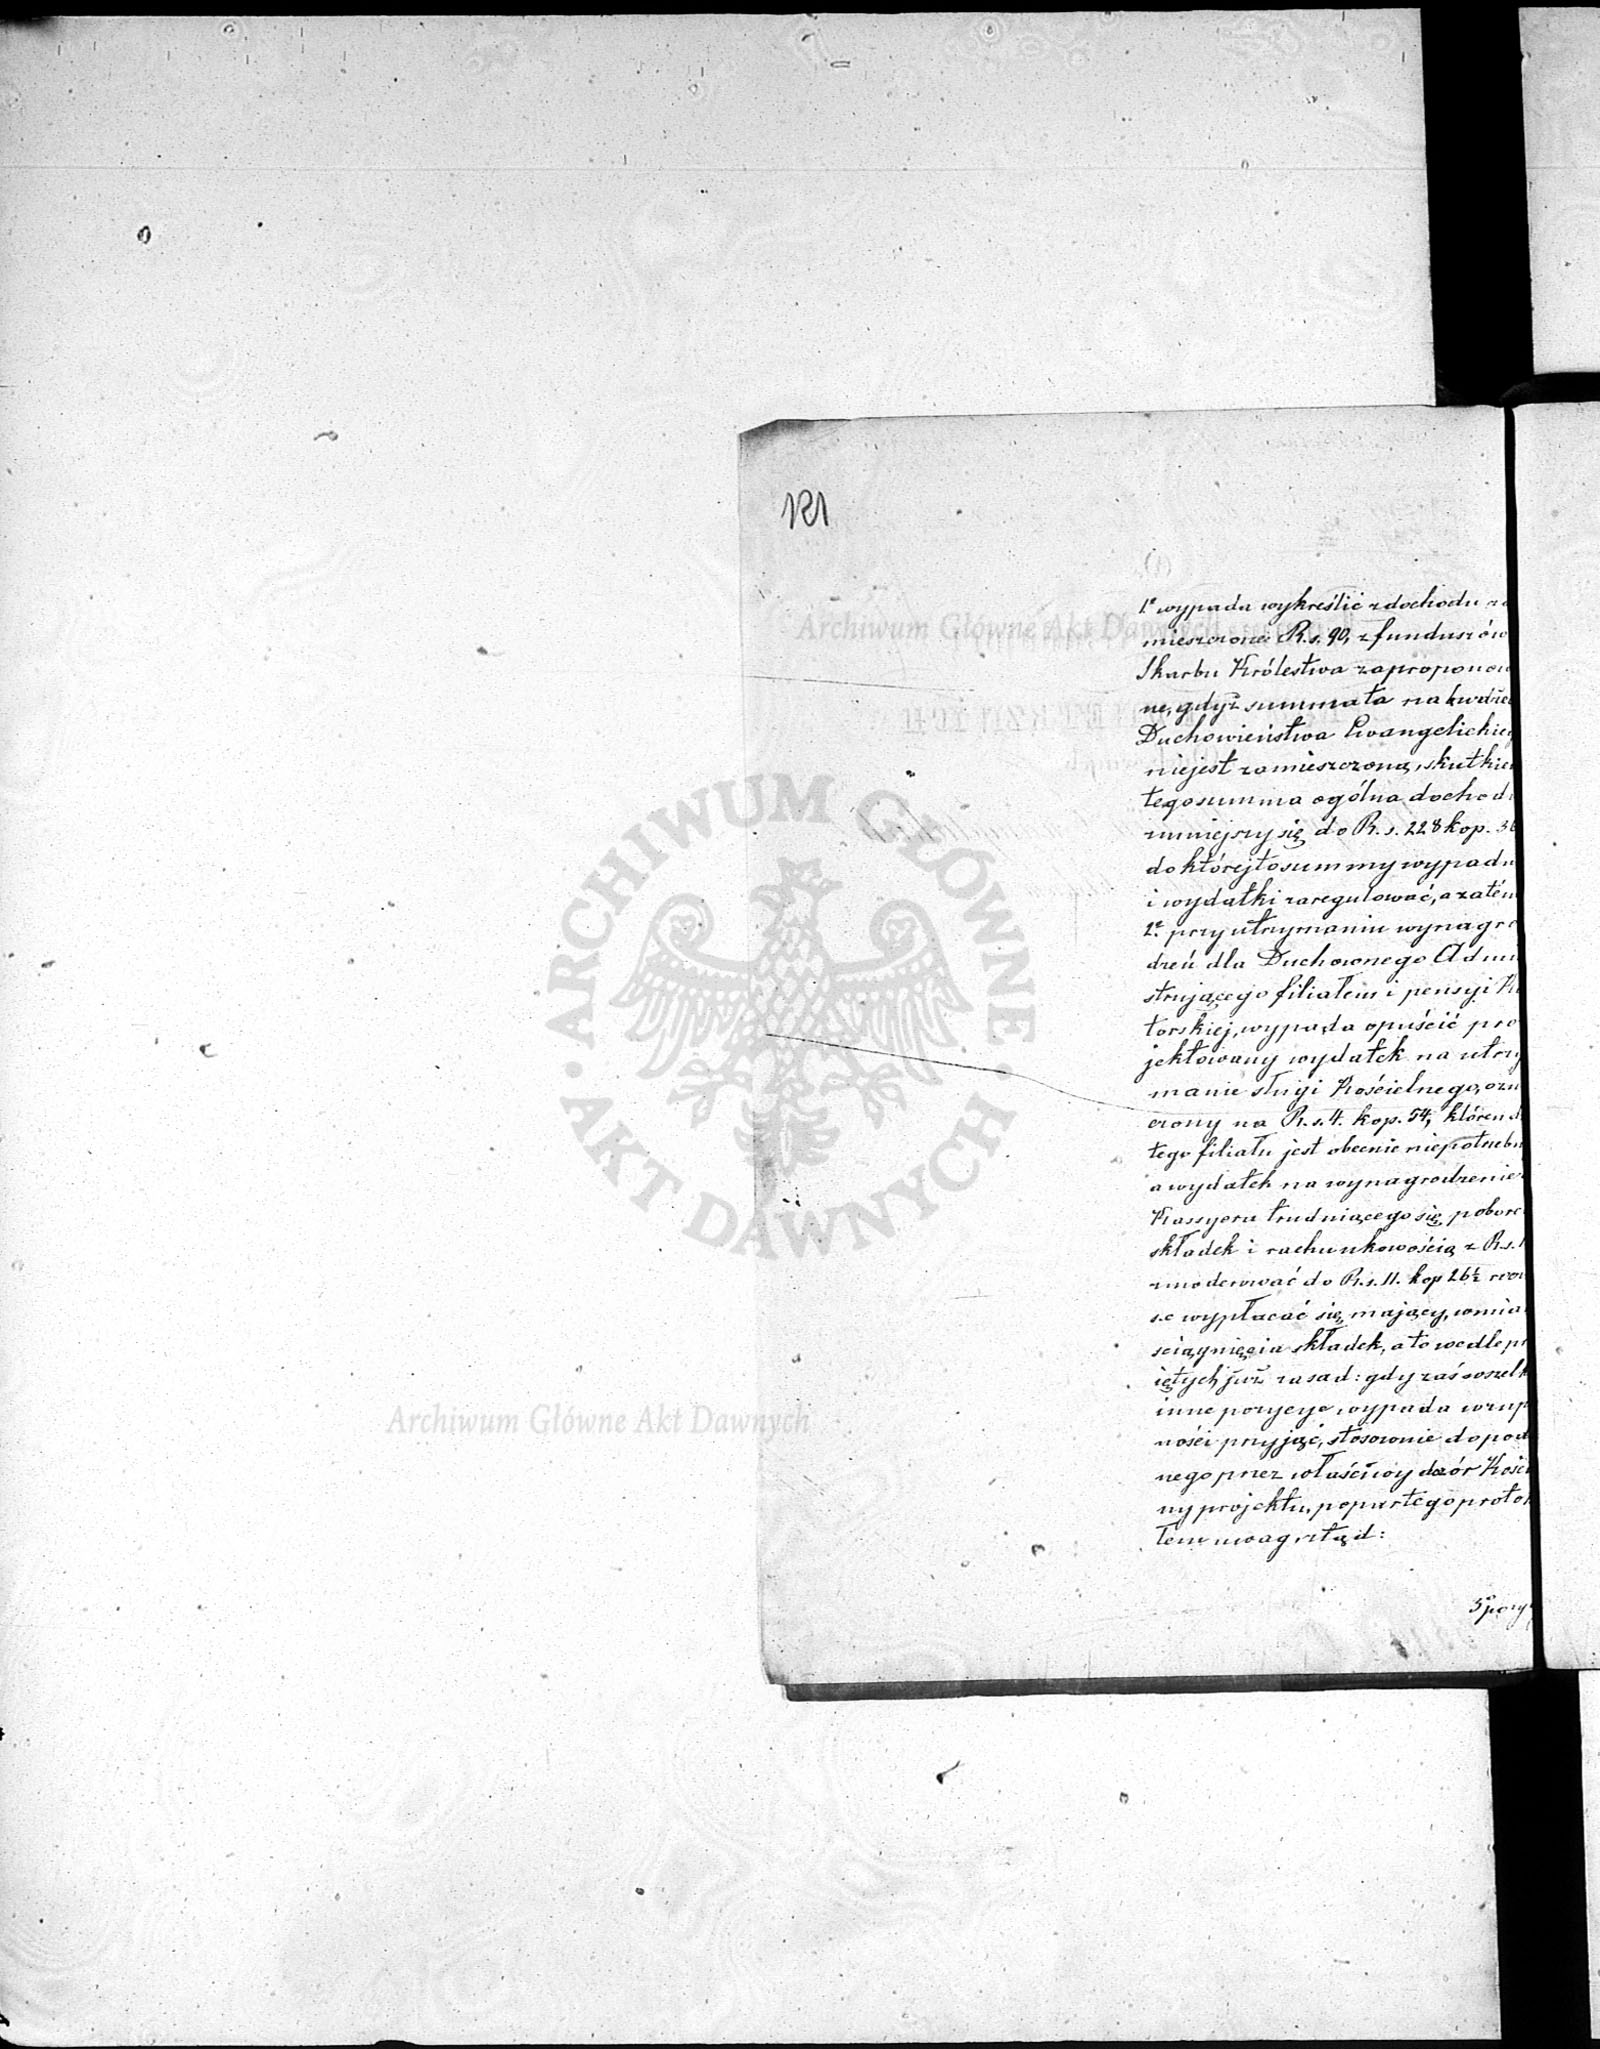 1º wypada wykreślić z dochodu za
mieszczone R.s. 90, z funduszów
Skarbu Królestwa zaproponow
ne, gdyż summa ta na budże
Duchowieństwa Ewangelickieg
niejest zamieszczoną, skutkie
tego summa ogólna dochodu
zmniejszy się do R.s. 228 kop. 36
do którejto summy wypada
i wydatki zaregulować, a zatém
2º przy utrzymaniu wynagro
dzeń dla Duchownego Admi
strującego filiałem i pensyi K
torskiej, wypada opuścić pro
jektowany wydatek na utrzy
manie sługi Kościelnego, ozn
czony na R.s. 4. kop. 54, któren d
tego filiału jest obecnie niepotrzebn
a wydatek na wynagrodzenie
Kassyera trudniącego się pobore
składek i rachunkowością z R.s. 1
zmoderować do R.s. 11. kop 26½
se wypłacać się mający, w mia
ściągnięcia składek, a to wedle pr
iętych już zasad: gdy zaś wszelk
inne pozycye, wypada w zup
ności przyjąć, stosownie do pod
nego przez właściwy dozór Kości
ny projektu, popartego protok
łem uwag, ztąd:
3º pozy
Archiwum Główne Akt Dawnych
ARCHIWUM GŁÓWNE
AKT DAWNYCH
Archiwum Główne Akt Dawnych